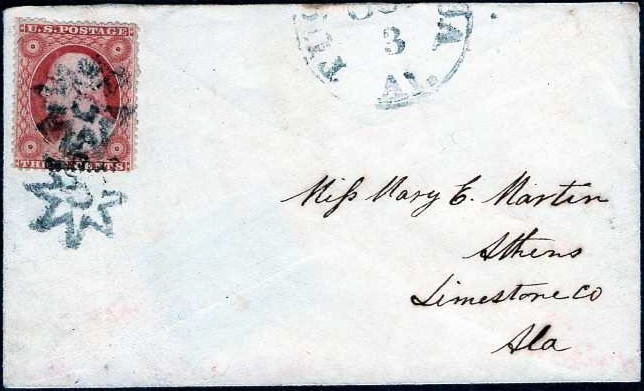 U.S. POSTAGE
THREE CENTS
3
Al.
Miss Mary E. Martin
Athens
Limestone Co
Ala